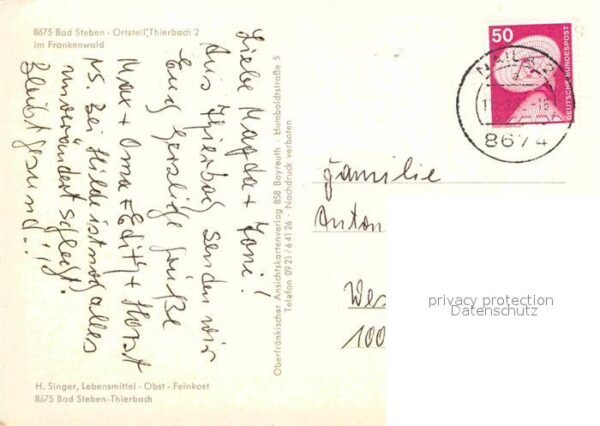 8675 Bad Steben - Ortsteil Thierbach 2
im Frankenwald
Liebe Magda + Toni!
Aus Thierbach senden wir
Euch herzliche Grüße
Max + Oma + Edith + Horst
NS. Bei Hilde ist noch alles
unverändert schlecht.
Bleibt gesund..!!
H. Singer, Lebensmittel - Obst - Feinkost
8675 Bad Steben-Thierbach
Oberfränkischer Ansichtskartenverlag 858 Bayreuth · Humboldtstraße 5
Telefon 09 21 / 6 41 26 · Nachdruck verboten
50
DEUTSCHE BUNDESPOST
NAILA 2
8674
Familie
Anton
Wes
100
privacy protection
Datenschutz